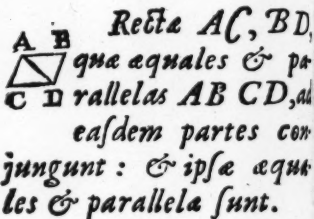 Rectæ AC, BD,
A B
quæ æquales & pa
C D rallelas AB CD, ad
eaſdem partes con
jungunt : & ipſæ æqua
les & parallelæ ſunt.